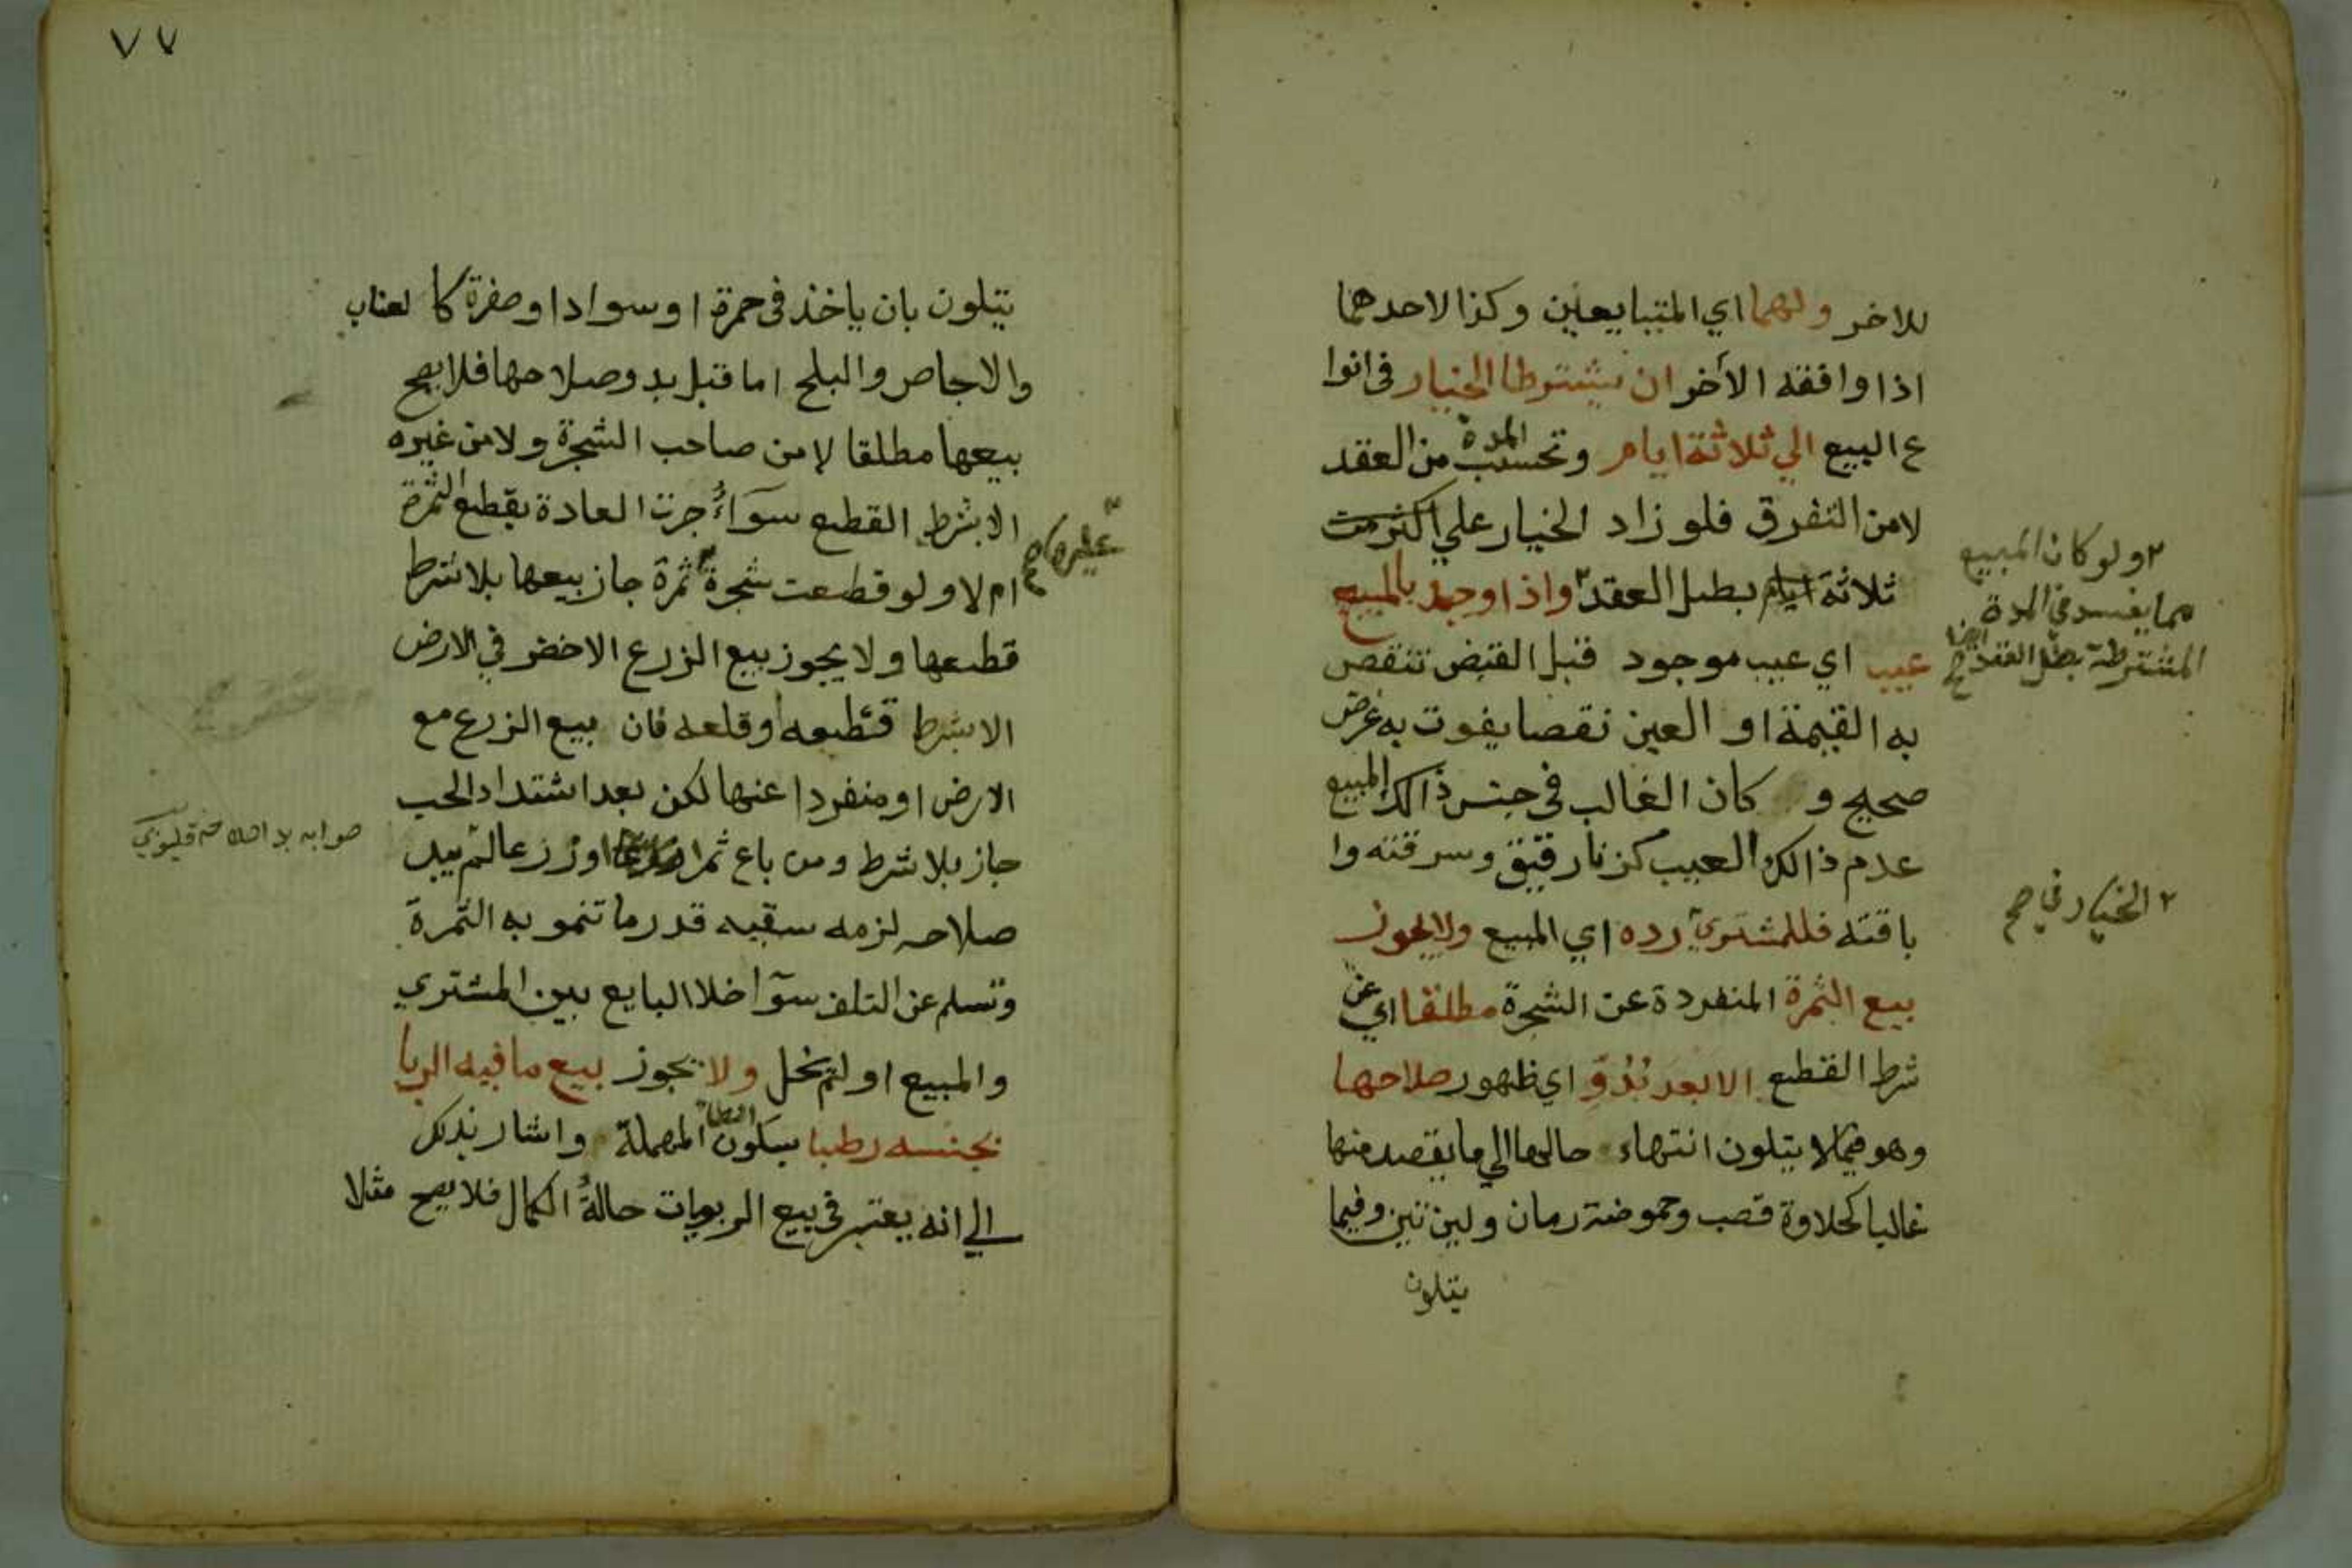 للاخر ولهما اي المتبايعين وكذا لاحدهما
اذا وافقه الأخر ان يشترطا الخيار في انوا
ع البيع الي ثلاثة ايام وتحسب المدة من العقد
لا من التفرق فلو زاد الخيار علي اكثر من
ثلاثة ايام بطل العقد ٢ واذا وجد بالمبيع
عيب اي عيب موجود قبل القبض تنقص
به القيمة او العين نقصا يفوت به غرض
صحيح و كان الغالب في جنس ذالك المبيع
عدم ذالك العيب كزنا رقيق وسرقته وا
باقته فللمشتري رده اي المبيع ولا يجوز
بيع الثمرة المنفردة عن الشجرة مطلقا اي عن
شرط القطع الا بعد بُدُوِّ اي ظهور صلاحها
وهو فيما لا يتلون انتهاء حالها الي ما يقصد منها
غالبا كحلاوة قصب وحموضة رمان ولين تين وفيما
يتلون
٢ ولو كان المبيع
مما يفسد في المدة
المشترطة بطل العقد ايضا صح
٢ الخيار في صح
٧٧
يتلون بان ياخذ في حمرة او سواد او صفرة كا لعناب
والاجاص والبلح اما قبل بدو صلاحها فلا يصح
بيعها مطلقا لا من صاحب الشجرة ولا من غيره
الا بشرط القطع سوآءُ جرت العادة بقطع الثمرة
ام لا ولو قطعت شجرة ثمرة جاز بيعها بلا شرط
قطعها ولا يجوز بيع الزرع الاخضر في الارض
الا بشرط قطعه او قلعه فان بيع الزرع مع
الارض او منفردا عنها لكن بعد اشتداد الحب
جاز بلا شرط ومن باع ثمرا او زرعا لم يبد
صلاحه لزمه سقيه قدر ما تنمو به الثمرة
وتسلم عن التلف سوآ خلا البايع بين المشتري
والمبيع او لم يخل ولا يجوز بيع ما فيه الربا
بجنسه رطبا بسكون الطا المهملة واشار بذلك
الي انه يعتبر في بيع الربويات حالةُ الكمال فلا يصح مثلا
عليها صح
صوابه بدا قليوبي